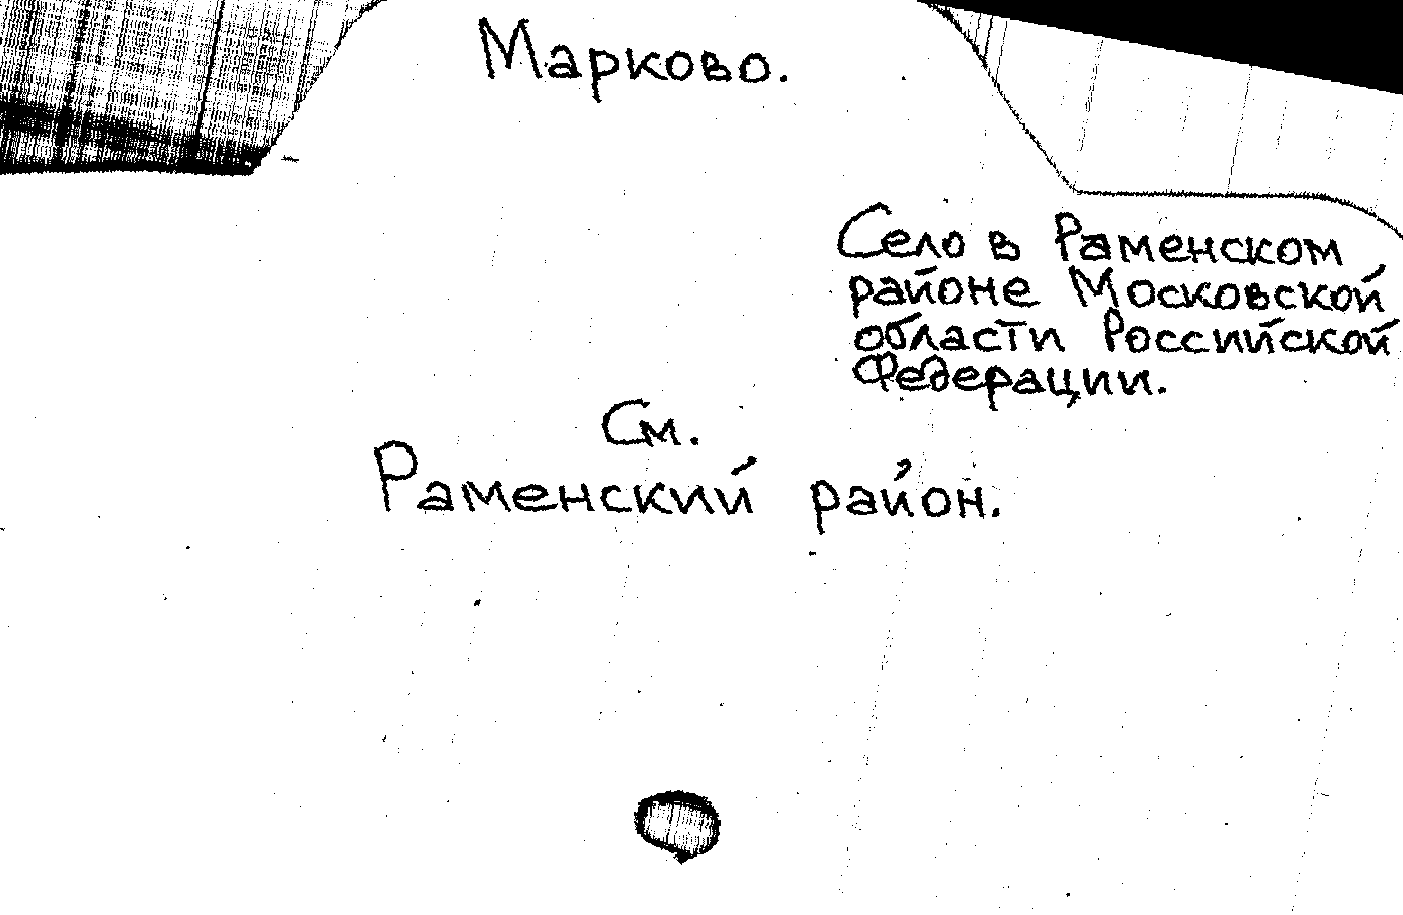 Марково.
Село в Раменском
районе Московской
области Российской
Федерации.
См.
Раменский район.